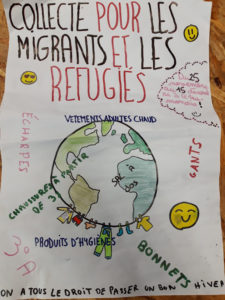 COLLECTE POUR LES
MIGRANTS ET LES
REFUGIES
DU 25
VETEMENTS ADULTES CHAUD
ÉCHARPES
GANTS
CHAUSSURES À PARTIR
DE 37
SAC À
DOS
PRODUITS D'HYGIÈNES
BONNETS
3°D
ON A TOUS LE DROIT DE PASSER UN BON HIVER